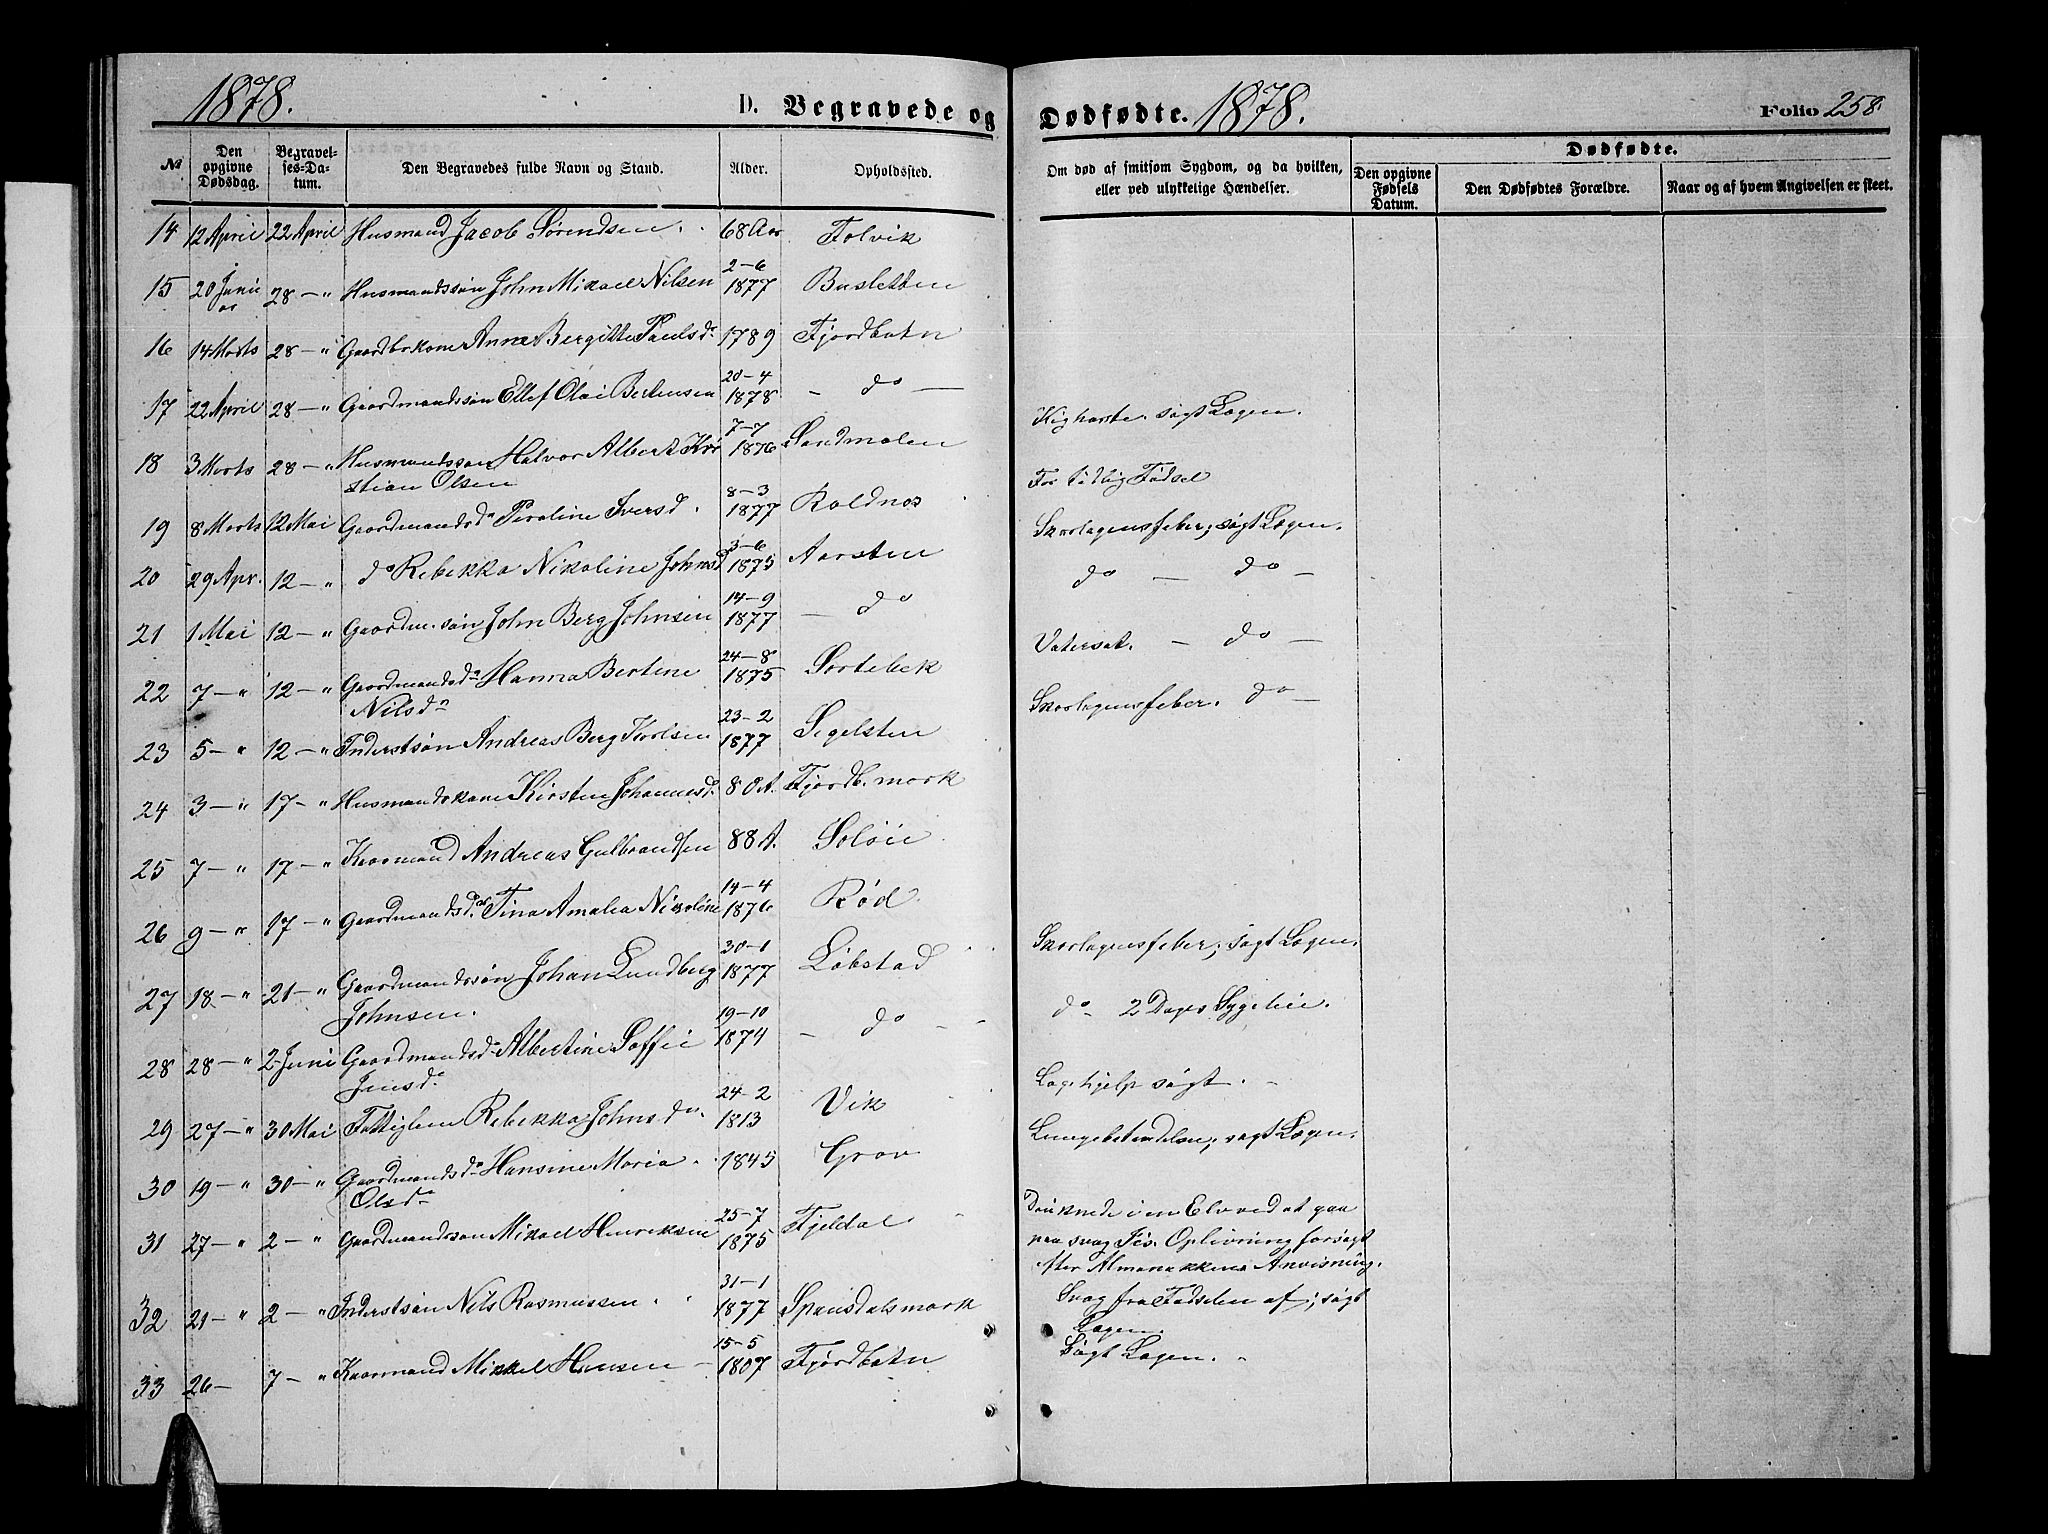 1878.
D. Begravede og
Dødfødte. 1878.
Folio 258.
№
Den opgivne Dødsdag.
Begravelses-Datum.
Den Begravedes fulde Navn og Stand.
Alder.
Opholdssted.
Om død af smitsom Sygdom, og da hvilken, eller ved ulykkelige Hændelser.
Dødfødte.
Den opgivne Fødsels Datum.
Den Dødfødtes Forældre.
Naar og af hvem Angivelsen er skeet.
14 12 April 22 April Husmand Jacob Sørendsen 68 Aar Folvik
15 20 28 – " Husmandssøn John Mikael Nilsen 2–6 1877 Busletten
16 14 Marts 28 – " Anne Bergitte Paulsdr 1789 Fjordbotn
17 22 April 28 – " Gaardmandssøn Ellef Olai Bertensen 20–4 1878 – do – Kighoste, søgt Lægen.
18 3 Marts 28 – " Husmandssøn Halvor Albert Kri
stian Olsen 7–7 1876 Sandmalen For tidlig Fødsel
19 8 Marts 12 Mai Gaardmandsdr Peroline Iversd. 8–3 1877 Roldnes Skarlagensfeber; søgt Lægen.
20 29 Apr. 12 – " do Rebekka Nikoline Johnsd 3–6 1875 Aarsten do – do –
21 1 Mai 12 – " Gaardm.søn John Berg Johnsen 14–9 1877 – do Vatersot. – do –
22 7 – " 12 – " Gaardmandsdr Hanna Bertine
Nilsdr 24–8 1875 Sortebek Skarlagensfeber. do –
23 5 – " 12 – " Inderstsøn Andreas Berg Karlsen 23–2 1877 Segelsten
24 3 – " 17 – " Husmandskone Kirsten Johannesd. 80 A. Fjordb.mark
25 7 – " 17 – " Kaarmand Andreas Gulbrandsen 88 A. Soløie
26 9 – " 17 – " Gaardmandsdr Tina Amalia Nikoline 14–4 1876 Rød Skarlagensfeber; søgt Lægen.
27 18 – " 21 – " Gaardmandssøn Johan Lundberg
Johnsen. 30–1 1877 Løbstad do 2 Dages Sygeleie.
28 28 – " 2 Juni Gaardmandsdr Albertine Soffie
Jensdr 19–10 1874 – do – Lægehjelp søgt.
29 27 – " 30 Mai Fattiglem Rebekka Johnsdr 24–2 1813 Vik Lungebetændelse; søgt Lægen.
30 19 – " 30 – " Gaardmandsdr Hansine Maria
Olsdr 1845 Grav
31 27 – " 2 – " Gaardmandssøn Mikael Henriksen 25–7 1875 Fjeldal Druknede i en Elv ved at gaa
paa svag Iis. Oplivning forsøgt
efter Almanakkens Anvisning.
32 21 – " 2 – " Inderstsøn Nils Rasmussen 31–1 1877 Spansdalsmark Svag fra Fødselen af; søgt
Lægen.
33 26 – 7 – " Kaarmand Mikkel Hansen 15–5 1807 Fjordbotn Søgt Lægen.